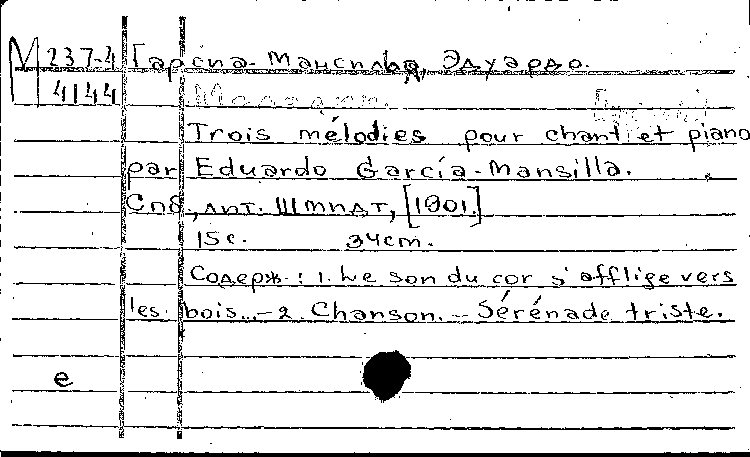 М 237-4 Гарсиа-Мансилья, Эдуардо.
4144
Trois mélodies pour chant et piano
par Eduardo García-Mansilla.
Спб., лит. Шмидт, [1901.]
15 с. 34 cm.
Содерж.: 1. Le son du cor s'afflige vers
les bois..-2. Chanson.-Sérénade triste.
е